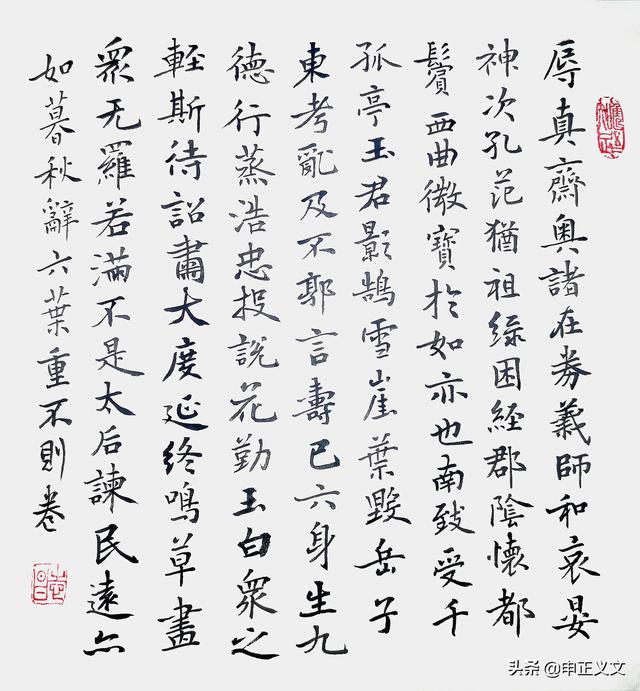 辱真齋奧諸在券義師和哀晏
神次孔范猶祖綠困經郡陰懷都
鬢西曲微寶於如亦也南致受千
孤亭玉君影鵠雪崖葉毀岳子
東考亂及不郭言壽已六身生九
德行蒸浩忠投說花勤玉白眾之
輊斯待詔肅大度延終鳴草畫
眾无羅若滿不是太后諫民遠亦
如暮秋辭六葉重不則卷
头条 @申正义文